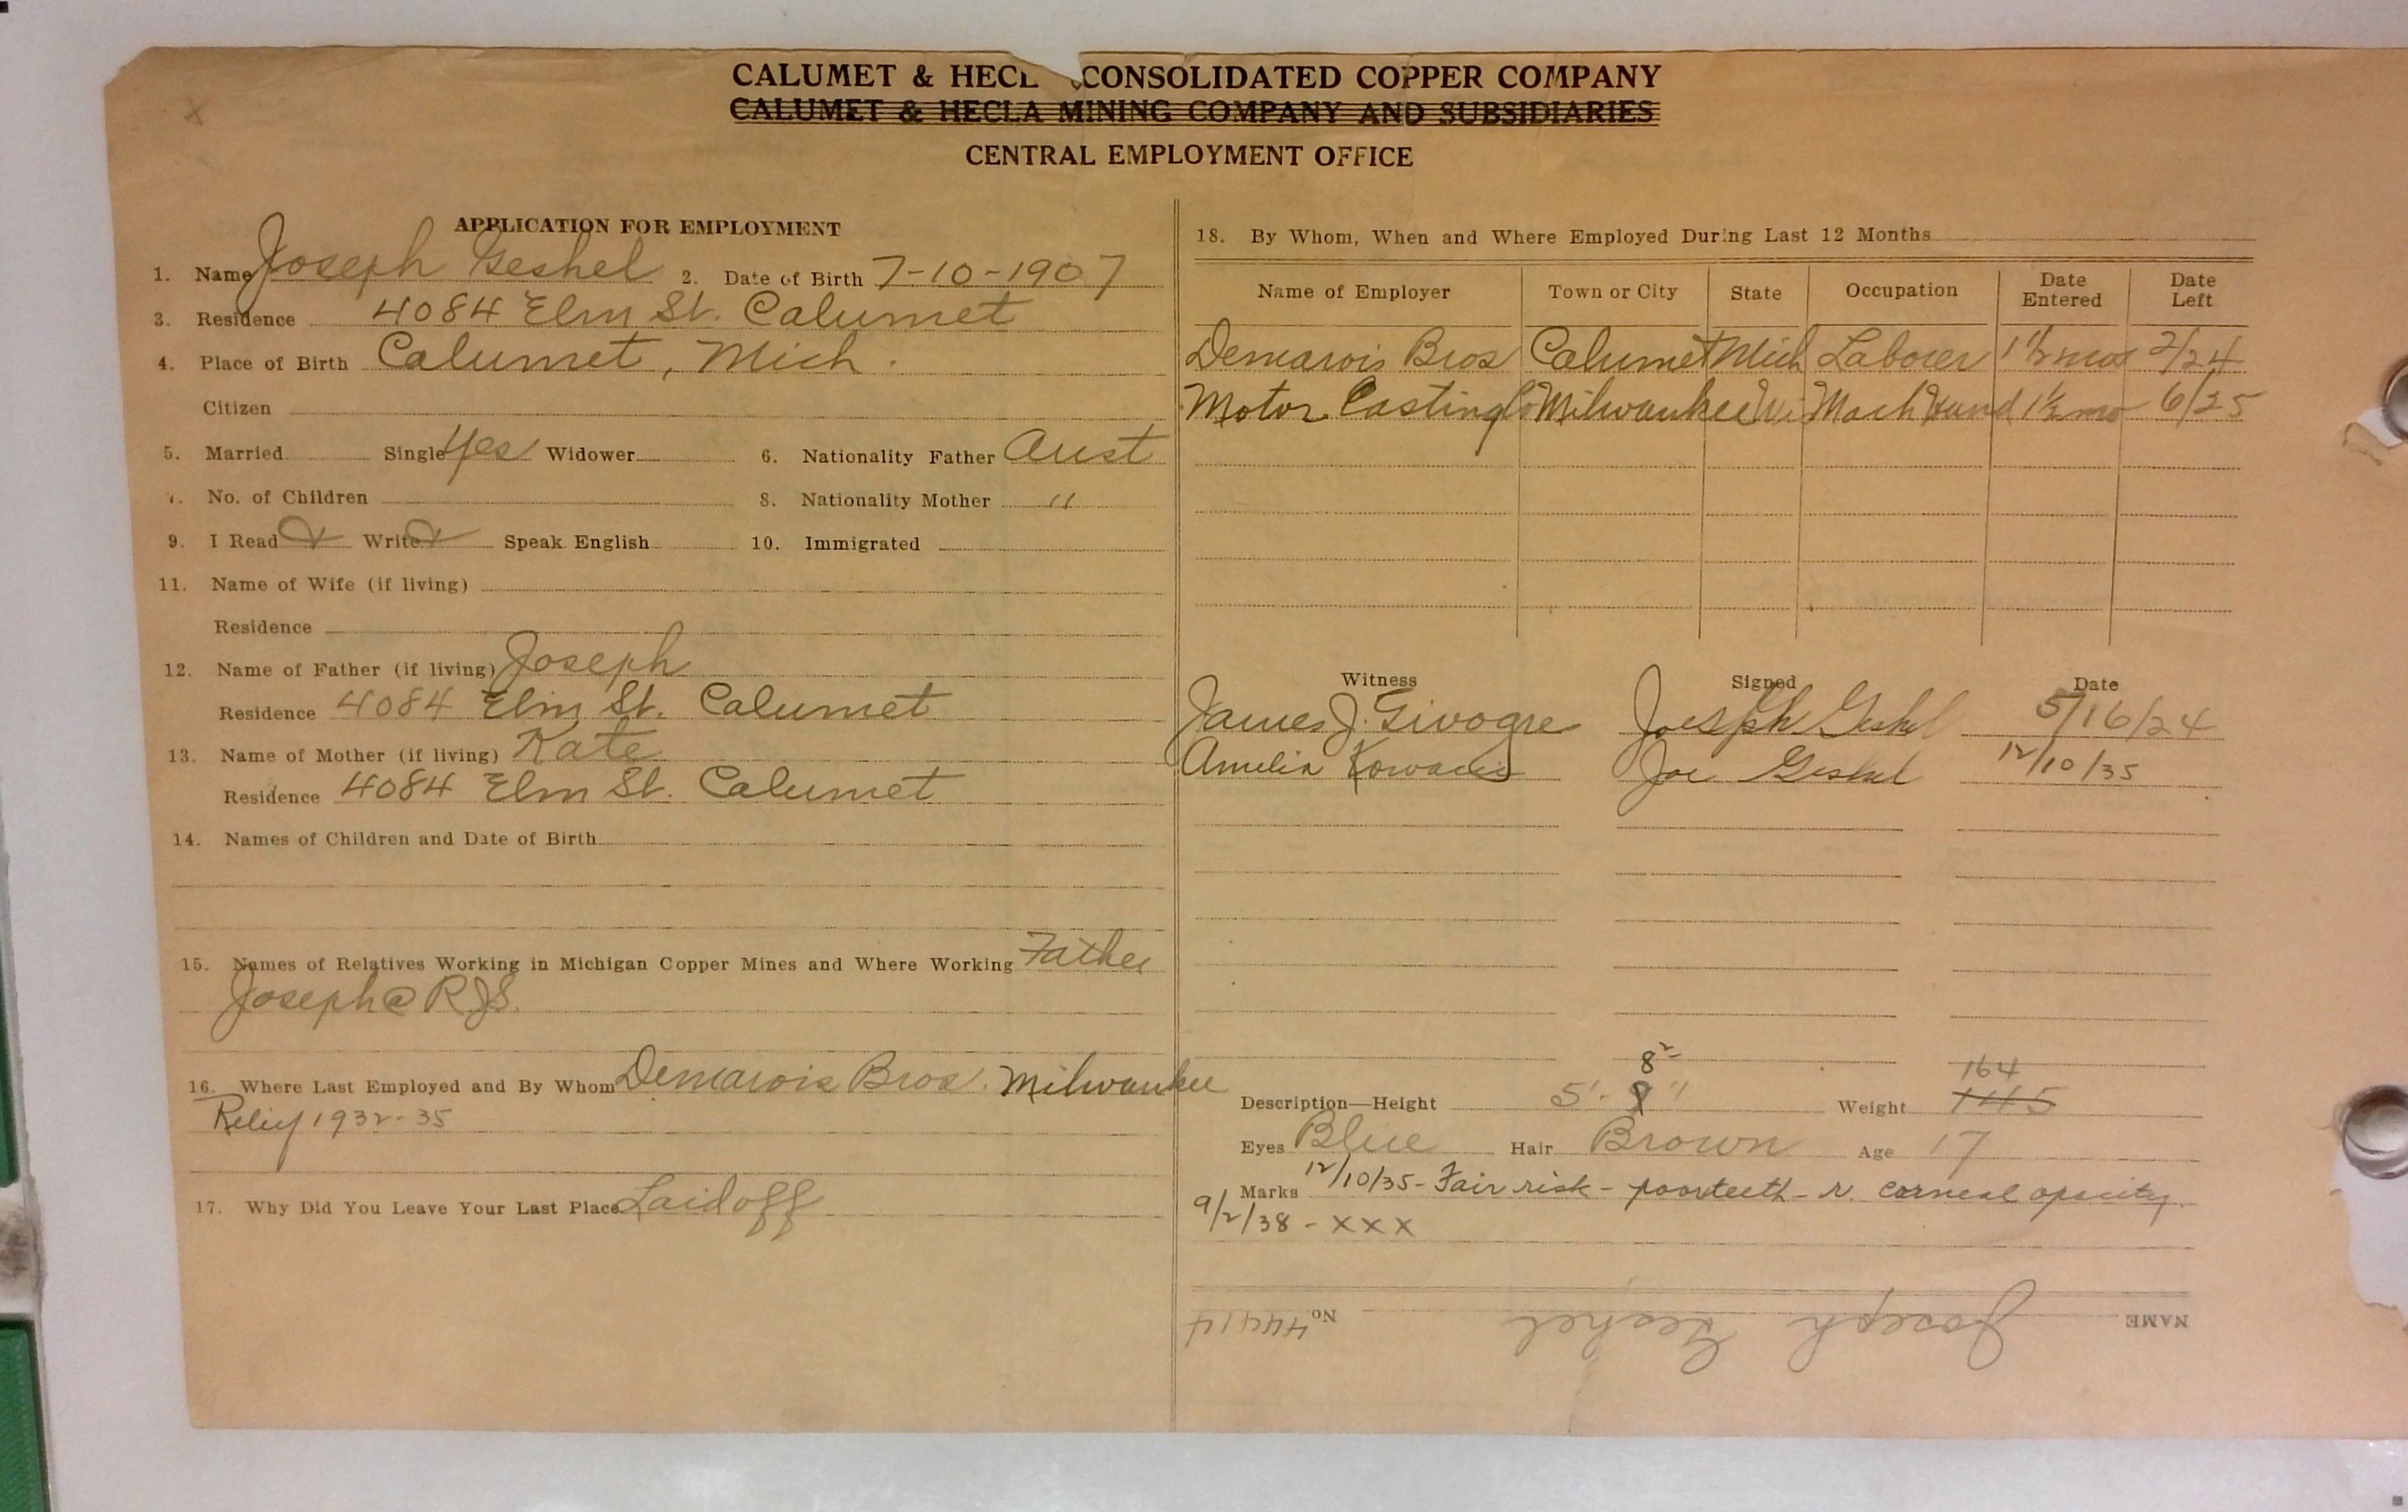 CALUMET & HECL CONSOLIDATED COPPER COMPANY
CALUMET & HECLA MINING COMPANY AND SUBSIDIARIES
CENTRAL EMPLOYMENT OFFICE
APPLICATION FOR EMPLOYMENT
1. Name Joseph Geshel 2. Date of Birth 7-10-1907
3. Residence 4084 Elm St. Calumet
4. Place of Birth Calumet, Mich.
Citizen
5. Married Single Yes Widower 6. Nationality Father Aust
7. No. of Children 8. Nationality Mother "
9. I Read Write Speak English 10. Immigrated
11. Name of Wife (if living)
Residence
12. Name of Father (if living) Joseph
Residence 4084 Elm St. Calumet
13. Name of Mother (if living) Kate
Residence 4084 Elm St. Calumet
14. Names of Children and Date of Birth
15. Names of Relatives Working in Michigan Copper Mines and Where Working Father
Joseph @ R.J.S.
16. Where Last Employed and By Whom Demarois Bros. Milwaukee
Relief 1932-35
17. Why Did You Leave Your Last Place Laid off
18. By Whom, When and Where Employed During Last 12 Months
Name of Employer Town or City State Occupation Date Entered Date Left
Demarois Bros Calumet Mich Laborer 1 1/2 mos 2/24
Motor Casting Co Milwaukee Wi Mach Hand 1 1/2 mo 6/25
Witness Signed Date
James J. Givogre Joseph Geshel 5/16/24
Amelia Joe Geshel 12/10/35
8 2 164
Description—Height 5'- 9" Weight 145
Eyes Blue Hair Brown Age 17
Marks 12/10/35 - Fair risk - poor teeth - r. corneal opacity.
9/2/38 - XXX
NAME Joseph Geshel No. 44414